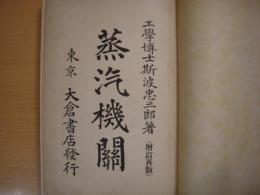 工學博士斯波忠三郎著
(增訂再版)
蒸汽機關
東京 大倉書店發行